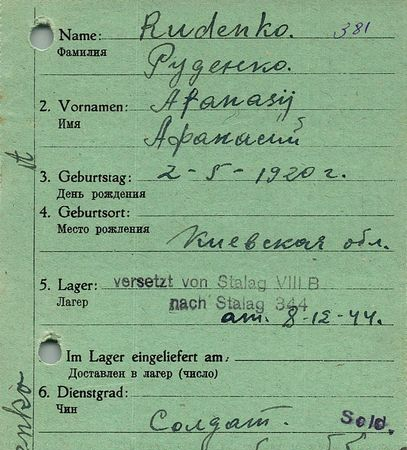 Name: Rudenko. 381
Фамилия Руденко.
2. Vornamen: Afanasij
Имя Афанасий
3. Geburtstag: 2-5-1920 г.
День рождения
4. Geburtsort:
Место рожления
Киевская обл.
5. Lager: versetzt von Stalag VIII B
Лагер nach Stalag 344
am. 8-12-44.
Im Lager eingeliefert am:
Доставлен в лагер (число)
6. Dienstgrad:
Чин
Солдат. Sold.